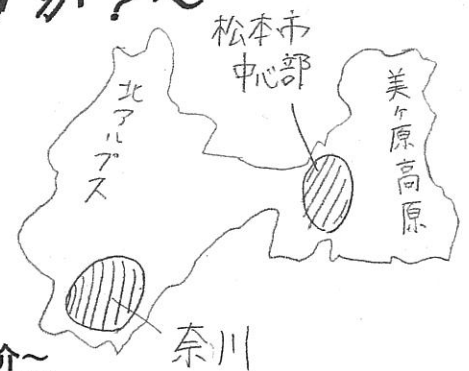 か?~
松本市
中心部
北アルプス
美ヶ原高原
奈川
介~